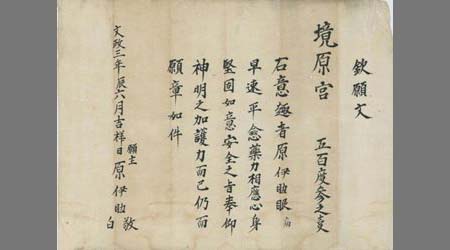 欽願文
境原宮 五百度参之叓
右意趣者原伊助眼病
早速平愈藥力相應心身
堅固如意安全之旨奉仰
神明之加護力而已仍而
願章如件
文政三年辰六月吉祥日 願主 原伊助 敬白